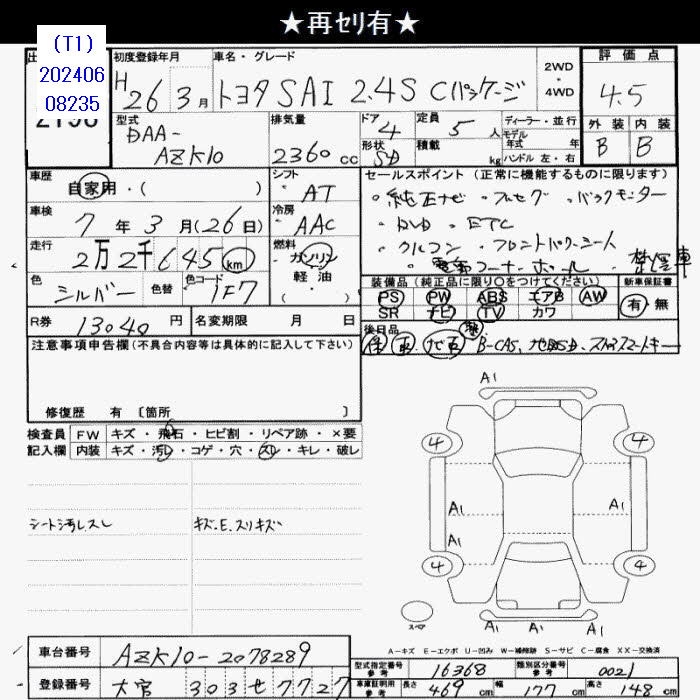 ★再ｾﾘ有★
(T1)
202406
08235
初度登録年月
H26年3月
車名・グレード
トヨタ SAI 2.4S Cパッケージ
2WD
・
4WD
評価点
4.5
外装 内装
B B
型式
DAA-
AZK10
排気量
2360cc
ドア
4
形状
SD
定員
5人
積載
kg
ディーラー・並行
モデル
年式 年
ハンドル 左・右
車歴
自家用・( )
シフト
AT
セールスポイント (正常に機能するものに限ります)
・純正ナビ ・フルセグ ・バックモニター
・DVD ・ETC
・クルコン ・フロントパワーシート
車検
7年3月(26日)
冷房
AAC
走行
2万2千645km
燃料
ガソリン
・
軽油
( )
色
シルバー
色替
色コード
1F7
装備品 (純正品に限り○をつけてください)
PS PW ABS エアB AW
SR ナビ TV カワ
新車保証書
有・無
R券
13040円
名変期限 月 日
後日品
注意事項申告欄(不具合内容等は具体的に記入して下さい)
修復歴 有 〔箇所 〕
検査員
記入欄
FW キズ・飛石・ヒビ割・リペア跡・×要
内装 キズ・汚レ・コゲ・穴・スレ・キレ・破レ
シート汚レスレ
キズ.E.スリキズ
A1
4
4
A1
A1
A1
4
4
スペア
A1
A1
A1
A－キズ E－エクボ U－凹み W－補修跡 S－サビ C－腐食 XX－交換済
車台番号
AZK10-2078289
登録番号
大宮 303 せ 7727
型式指定番号
参考
16368
類別区分番号
参考
0021
車庫証明用
参考
長さ
469cm
幅
177cm
高さ
148cm